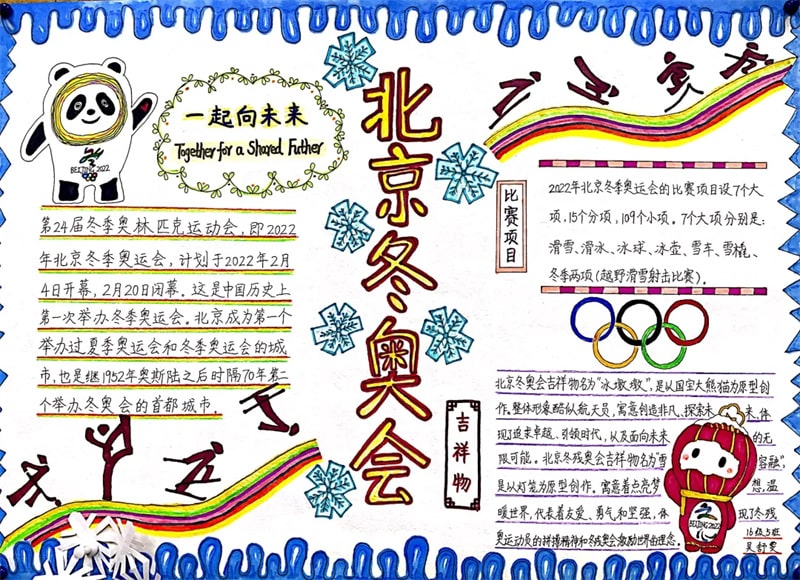 一起向未来
Together for a Shared Futher
BEIJING 2022
北京冬奥会
第24届冬季奥林匹克运动会,即2022
年北京冬季奥运会,计划于2022年2月
4日开幕,2月20日闭幕。这是中国历史上
第一次举办冬季奥运会。北京成为第一个
举办过夏季奥运会和冬季奥运会的城
市,也是继1952年奥斯陆之后时隔70年第二
个举办冬奥会的首都城市。
比赛项目
2022年北京冬季奥运会的比赛项目设7个大
项,15个分项,109个小项。7个大项分别是:
滑雪、滑冰、冰球、冰壶、雪车、雪橇、
冬季两项(越野滑雪射击比赛)。
吉祥物
北京冬奥会吉祥物名为“冰墩墩”,是从国宝大熊猫为原型创
作。整体形象酷似航天员,寓意创造非凡、探索未来,体
现了追求卓越、引领时代,以及面向未来的无
限可能。北京冬残奥会吉祥物名为“雪容融”,
是以灯笼为原型创作。寓意着点亮梦想,温
暖世界,代表着友爱、勇气和坚强,体现了冬残
奥运动员的拼搏精神和冬残奥会激励世界的理念。
BEIJING 2022
16级5班